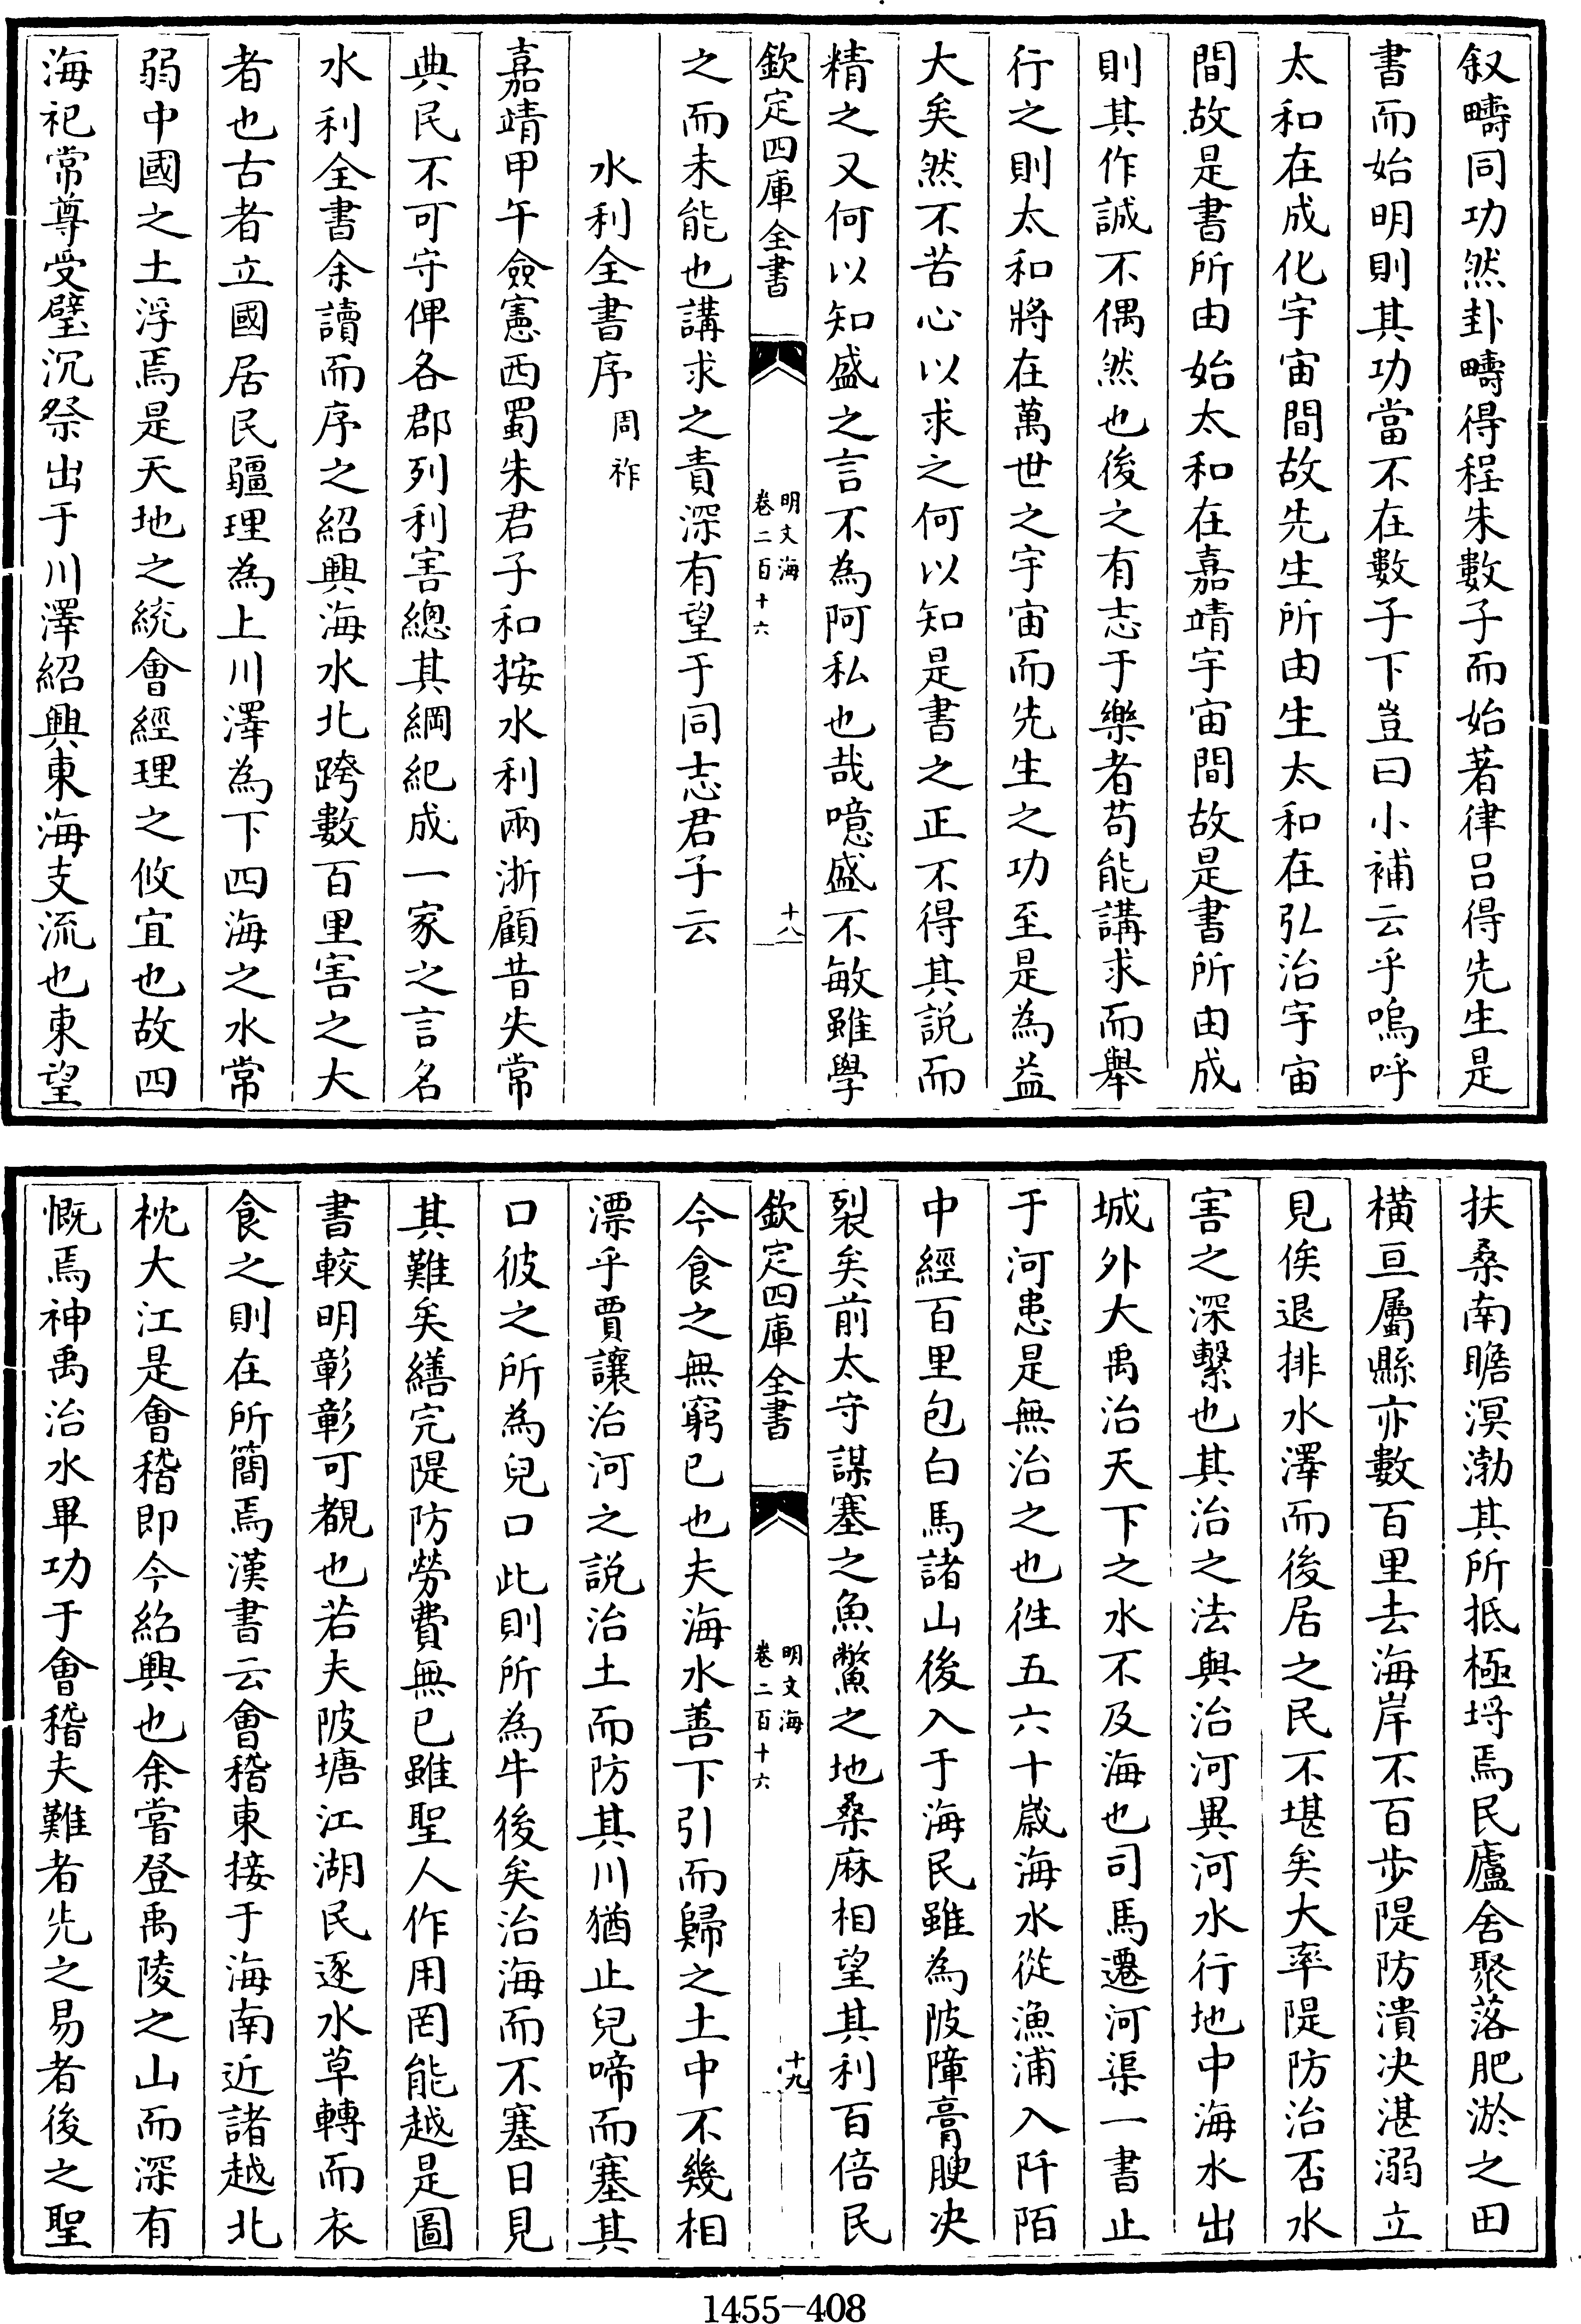 叙疇同功然卦疇得程朱數子而始著律呂得先生是
書而始明則其功當不在數子下豈曰小補云乎嗚呼
太和在成化宇宙間故先生所由生太和在弘治宇宙
間故是書所由始太和在嘉靖宇宙間故是書所由成
則其作誠不偶然也後之有志于樂者苟能講求而舉
行之則太和將在萬世之宇宙而先生之功至是為益
大矣然不苦心以求之何以知是書之正不得其說而
精之又何以知盛之言不為阿私也哉噫盛不敏雖學
欽定四庫全書
明文海
卷二百十六
十八
之而未能也講求之責深有望于同志君子云
水利全書序 周祚
嘉靖甲午僉憲西蜀朱君子和按水利兩浙顧昔失常
典民不可守俾各郡列利害總其綱紀成一家之言名
水利全書余讀而序之紹興海水北跨數百里害之大
者也古者立國居民疆理為上川澤為下四海之水常
弱中國之土浮焉是天地之統會經理之攸宜也故四
海祀常尊受璧沉祭出于川澤紹興東海支流也東望
扶桑南瞻溟渤其所抵極埒焉民廬舍聚落肥淤之田
橫亘屬縣亦數百里去海岸不百步隄防潰决湛溺立
見俟退排水澤而後居之民不堪矣大率隄防治否水
害之深繫也其治之法與治河異河水行地中海水出
城外大禹治天下之水不及海也司馬遷河渠一書止
于河患是無治之也徃五六十歲海水從漁浦入阡陌
中經百里包白馬諸山後入于海民雖為陂障膏腴决
裂矣前太守謀塞之魚鱉之地桑麻相望其利百倍民
欽定四庫全書
明文海
卷二百十六
十九
今食之無窮已也夫海水善下引而歸之土中不幾相
漂乎賈讓治河之說治土而防其川猶止兒啼而塞其
口彼之所為兒口此則所為牛後矣治海而不塞日見
其難矣繕完隄防勞費無已雖聖人作用罔能越是圖
書較明彰彰可覩也若夫陂塘江湖民逐水草轉而衣
食之則在所簡焉漢書云會稽東接于海南近諸越北
枕大江是會稽即今紹興也余嘗登禹陵之山而深有
慨焉神禹治水畢功于會稽夫難者先之易者後之聖
1455-408